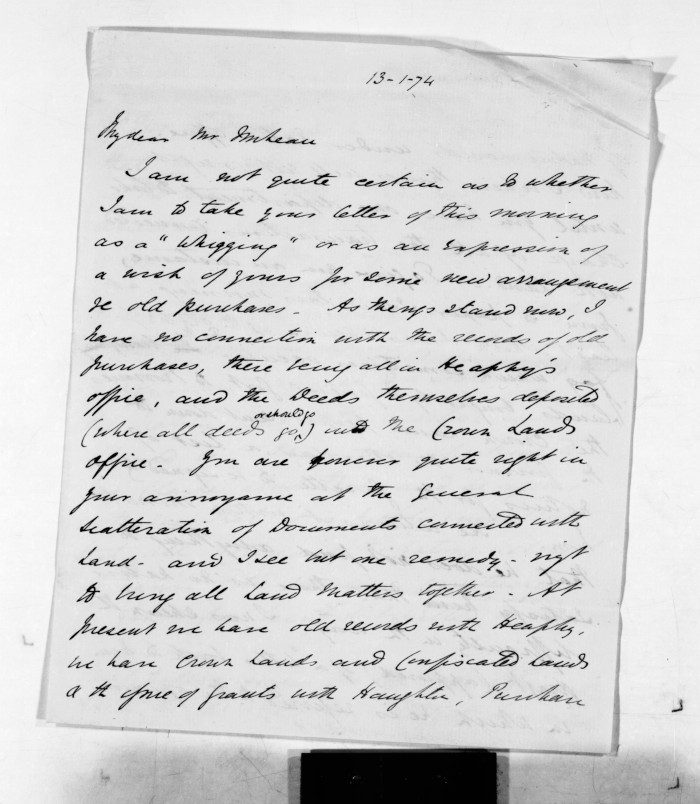 13-1-74
My dear Mr. McLean
I am not quite certain as to whether
I am to take your letter of this morning
as a "Whigging" or as an expression of
a wish of yours for some new arrangement
re old purchases. As things stand now, I
have no connection with the records of old
purchases, these being all in Heaphy's
office, and the Deeds themselves deposited
or should go
(where all deeds go) with the Crown Lands
Office. You are however quite right in
your annoyance at the General
Scatteration of Documents connected with
Land - and I see but one remedy - viz
to bring all Land matters together. At
present we have old records with Heaphy,
we have Crown Lands and Confiscated Lands
& the issue of Grants with Haughton, Purchase